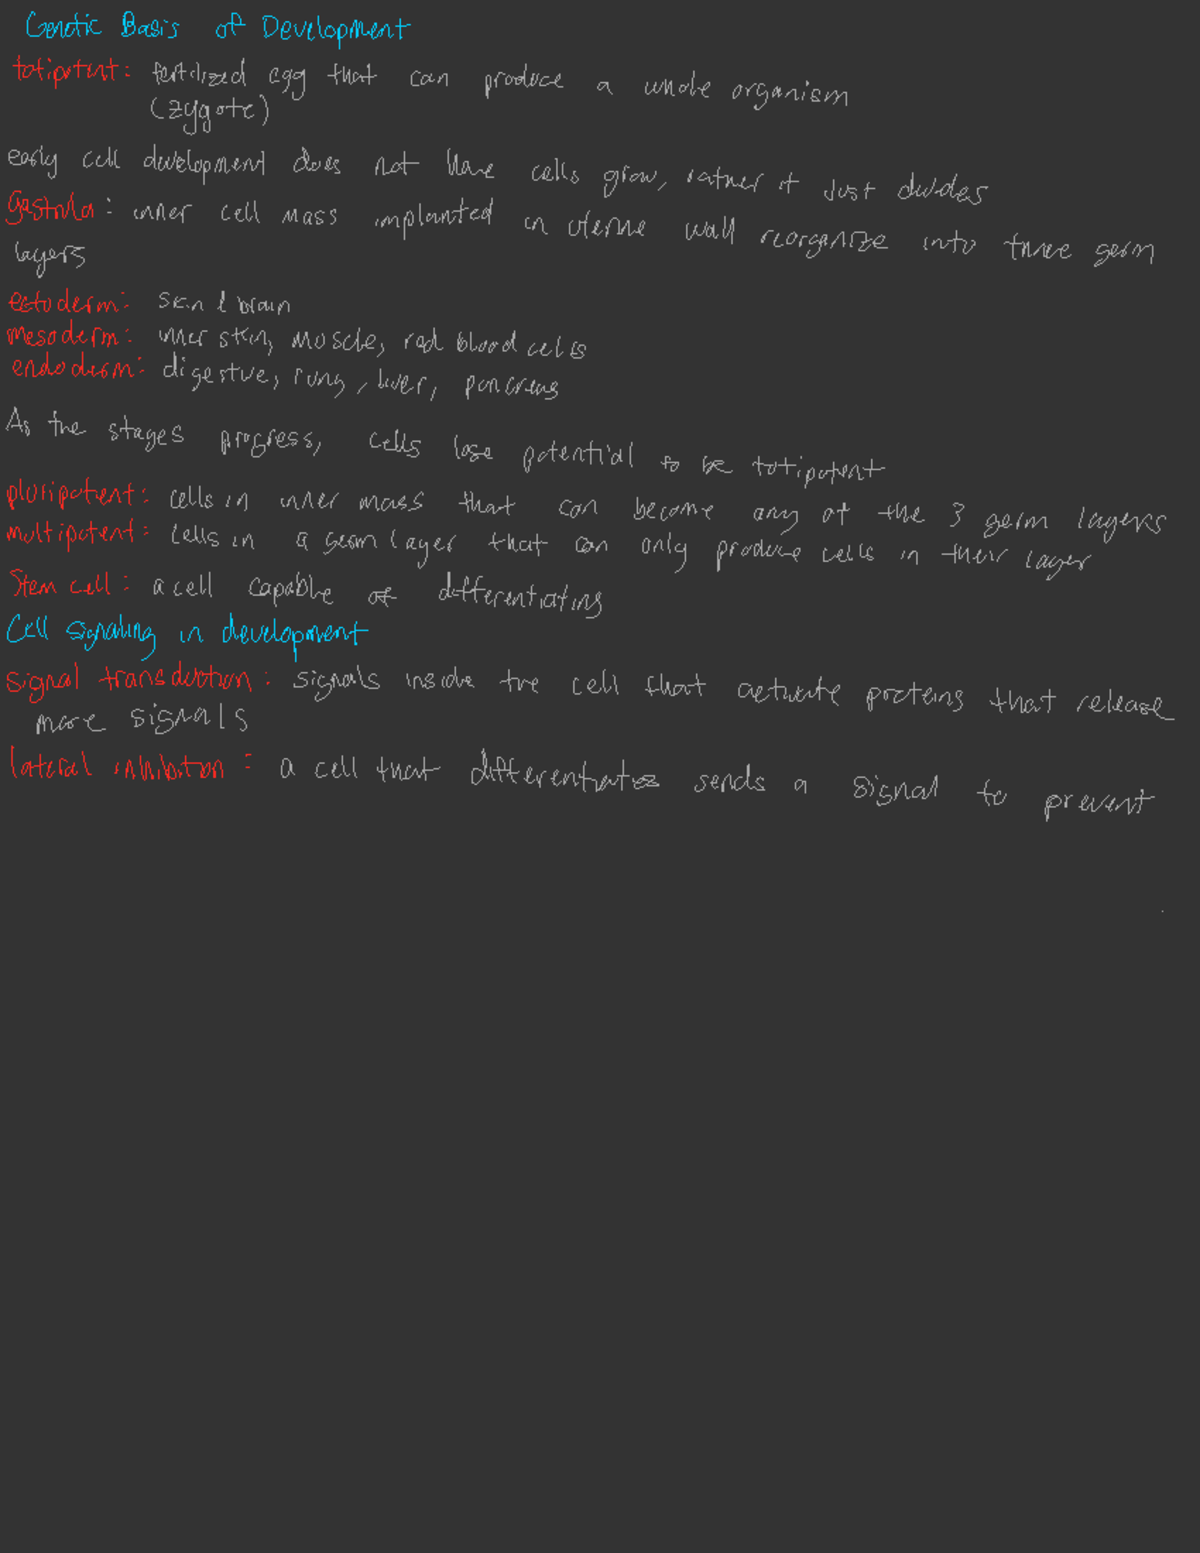 Genetic Basis of Development
totipotent: fertilized egg that can produce a whole organism
(zygote)
early cell development does not have cells grow, rather it just divides
Gastrula: inner cell mass implanted in uterine wall reorganize into three germ
layers
ectoderm: skin & brain
mesoderm: inner skin, muscle, red blood cells
endoderm: digestive, lung, liver, pancreas
As the stages progress, cells lose potential to be totipotent
pluripotent: cells in inner mass that can become any of the 3 germ layers
multipotent: cells in a germ layer that can only produce cells in their layer
Stem cell: a cell capable of differentiating
Cell signaling in development
signal transduction: signals inside the cell that activate proteins that release
more signals
lateral inhibition: a cell that differentiates sends a signal to prevent